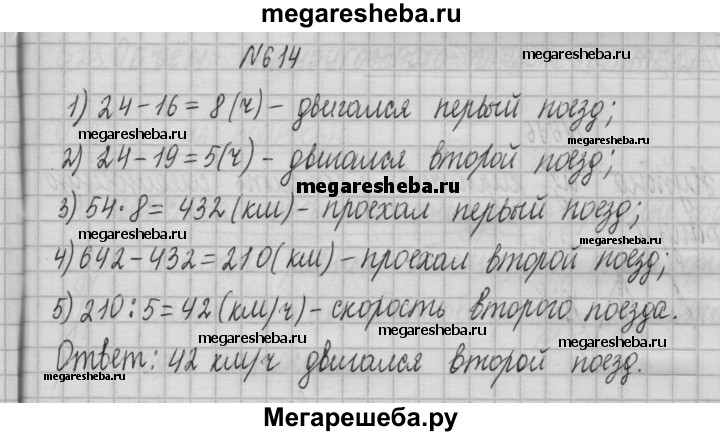 megaresheba.ru
N614
megaresheba.ru
1) 24-16=8(ч)- двигался первый поезд;
megaresheba.ru
megaresheba.ru
2) 24-19=5(ч)- двигался второй поезд;
megaresheba.ru
3) 54·8=432(км)-проехал первый поезд;
megaresheba.ru
megaresheba.ru
4) 642-432=210(км)-проехал второй поезд;
megaresheba.ru
5) 210:5=42(км/ч)-скорость второго поезда.
megaresheba.ru
megaresheba.ru
Ответ: 42 км/ч двигался второй поезд.
megaresheba.ru
Мегарешеба.ру